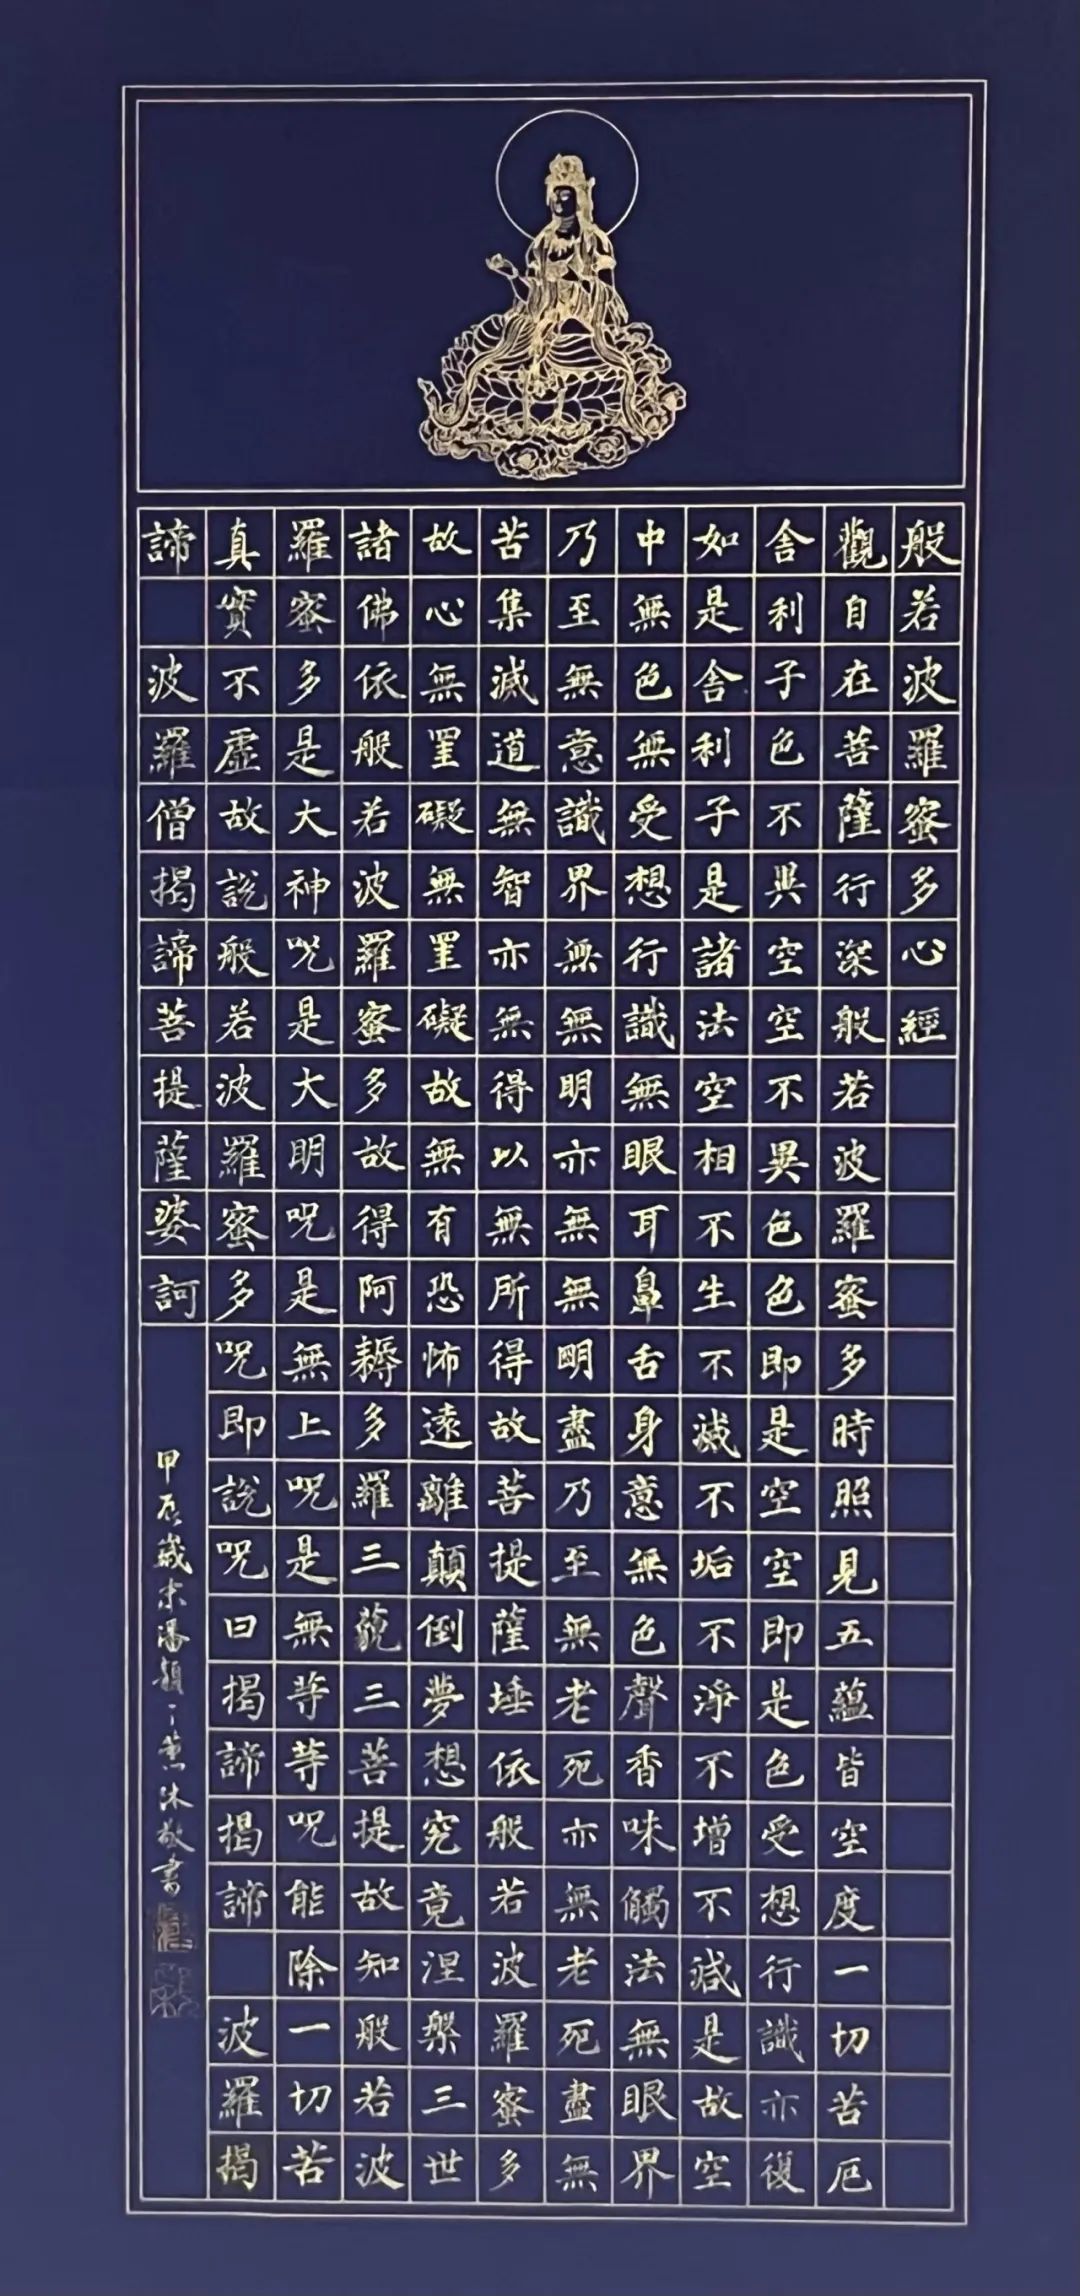 般若波羅蜜多心經
觀自在菩薩行深般若波羅蜜多時照見五蘊皆空度一切苦厄
舍利子色不異空空不異色色即是空空即是色受想行識亦復
如是舍利子是諸法空相不生不滅不垢不淨不增不減是故空
中無色無受想行識無眼耳鼻舌身意無色聲香味觸法無眼界
乃至無意識界無無明亦無無明盡乃至無老死亦無老死盡無
苦集滅道無智亦無得以無所得故菩提薩埵依般若波羅蜜多
故心無罣礙無罣礙故無有恐怖遠離顛倒夢想究竟涅槃三世
諸佛依般若波羅蜜多故得阿耨多羅三藐三菩提故知般若波
羅蜜多是大神咒是大明咒是無上咒是無等等咒能除一切苦
真實不虛故說般若波羅蜜多咒即說咒曰揭諦揭諦 波羅揭
諦 波羅僧揭諦菩提薩婆訶
甲辰歲末潘穎〻薰沐敬書